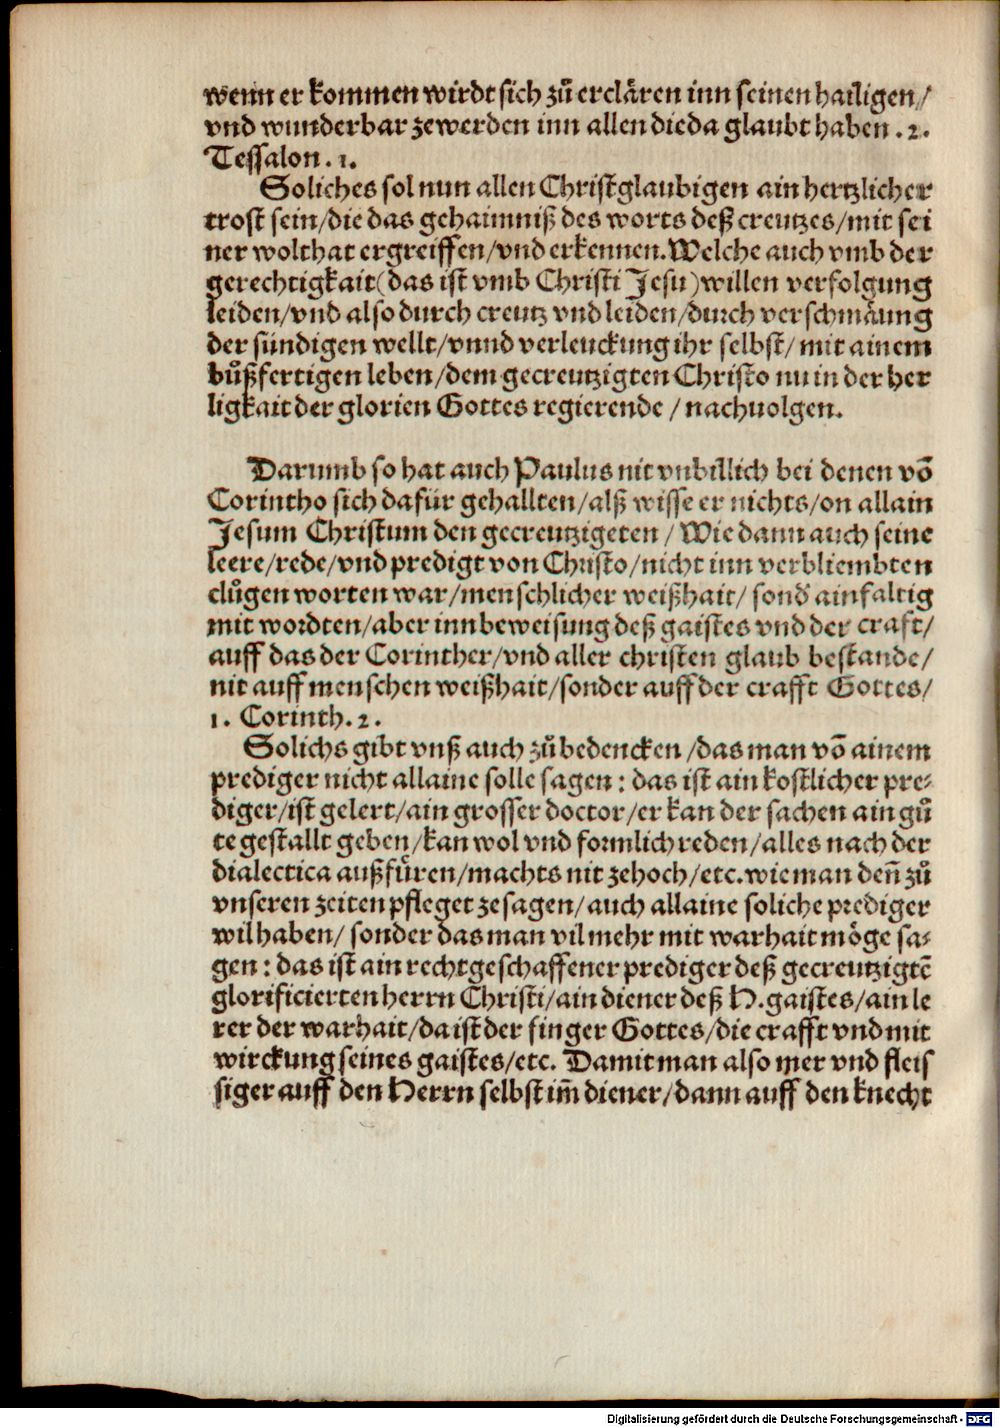 wenn er kommen wirdt sich zů erclären inn seinen hailigen/
vnd wunderbar zewerden inn allen die da glaubt haben . 2.
Tessalon . 1.
Soliches sol nun allen Christglaubigen ain hertzlicher
trost sein/die das gehaimniß des worts deß creutzes/mit sei
ner wolthat ergreiffen/vnd erkennen. Welche auch vmb der
gerechtigkait (das ist vmb Christi Jesu) willen verfolgung
leiden/vnd also durch creutz vnd leiden/durch verschmäung
der sündigen wellt/vnnd verleuckung ihr selbst/ mit ainem
bůßfertigen leben/dem gecreutzigten Christo nu in der her
ligkait der glorien Gottes regierende / nachuolgen.
Darumb so hat auch Paulus nit vnbillich bei denen võ
Corintho sich dafür gehallten/alß wisse er nichts/on allain
Jesum Christum den gecreutzigeten / Wie dann auch seine
leere/rede/vnd predigt von Christo/nicht inn verbliembten
clůgen worten war/menschlicher weißhait/ sond' ainfaltig
mit wordten/aber inn beweisung deß gaistes vnd der craft/
auff das der Corinther/vnd aller christen glaub bestande/
nit auff menschen weißhait/sonder auff der crafft Gottes/
1. Corinth. 2.
Solichs gibt vnß auch zů bedencken /das man võ ainem
prediger nicht allaine solle sagen : das ist ain kostlicher pre⸗
diger/ist gelert/ain grosser doctor/er kan der sachen ain gů
te gestallt geben/kan wol vnd formlich reden/alles nach der
dialectica außfüren/machts nit zehoch/etc. wie man deñ zů
vnseren zeiten pfleget zesagen/auch allaine soliche prediger
wil haben/ sonder das man vil mehr mit warhait möge sa⸗
gen : das ist ain rechtgeschaffener prediger deß gecreutzigtẽ
glorificierten herrn Christi/ain diener deß H. gaistes/ain le
rer der warhait/da ist der finger Gottes/die crafft vnd mit
wirckung seines gaistes/etc. Damit man also mer vnd fleis
siger auff den Herrn selbst im̃ diener/dann auff den knecht
Digitalisierung gefördert durch die Deutsche Forschungsgemeinschaft - DFG